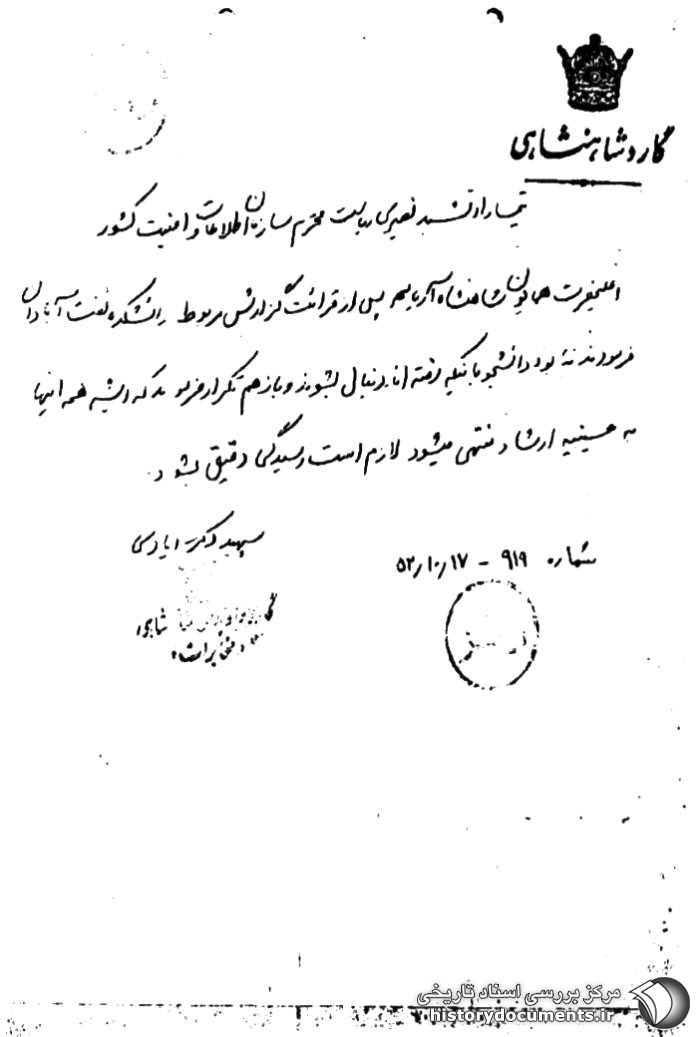 گارد شاهنشاهی
تیمسار ارتشبد نصیری ریاست محترم سازمان اطلاعات و امنیت کشور
اعلیحضرت همایون شاهنشاه آریامهر پس از قرائت گزارش مربوط دانشکده نفت آبادان
فرمودند نه بود دانشجویانیکه رفته اند دنبال بشوند و باز هم تکرار فرمودند که ریشه همه اینها
به حسینیه ارشاد منتهی میشود لازم است رسیدگی دقیق بشود.
سپهبد دکتر ایادی
شماره ۹۱۹ - ۵۲/۱۰/۱۷
رمز
مرکز بررسی اسناد تاریخی
historydocuments.ir